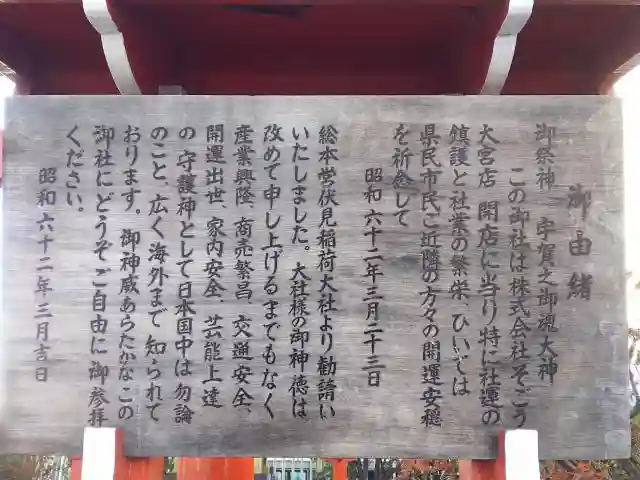 御由緒
御祭神 宇賀之御魂大神
この御社は株式会社そごう
大宮店 開店に当り特に社運の
鎮護と社業の繁栄、ひいては
県民市民ご近隣の方々の開運安穏
を祈念して
昭和六十二年三月二十三日
総本宮伏見稲荷大社より勧請い
いたしました。大社様の御神徳は
改めて申し上げるまでもなく
産業興隆、商売繁昌、交通安全、
開運出世、家内安全、芸能上達
の守護神として日本国中は勿論
のこと、広く海外まで知られて
おります。御神威あらたかなこの
御社にどうぞご自由に御参拝
ください。
昭和六十二年三月吉日